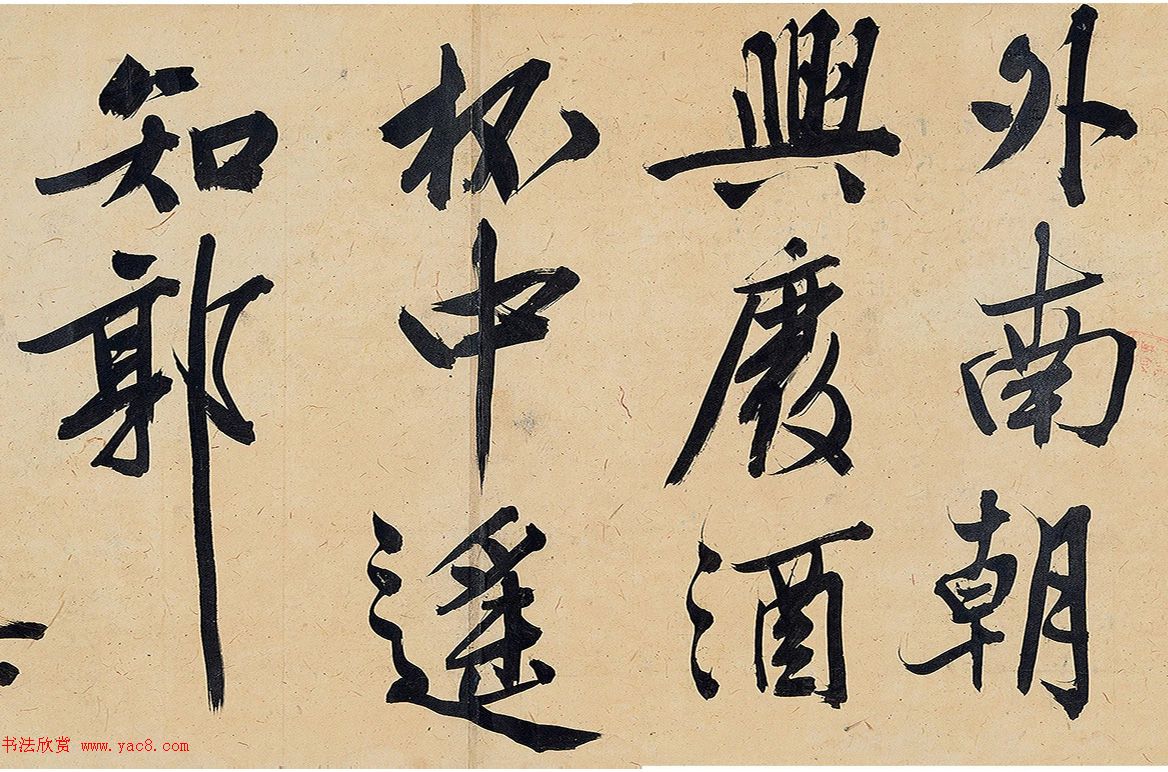 外南朝
興廢酒
杯中遙
知郭
书法欣赏 www.yac8.com